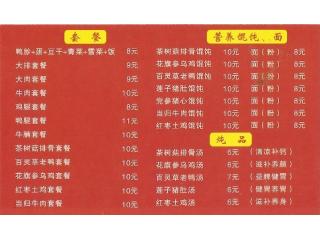 套 餐
鸭胗+蛋+豆干+青菜+雪菜+饭 8元
大排套餐 9元
大肉套餐 9元
牛肉套餐 10元
鸡腿套餐 8元
鸭腿套餐 11元
牛腩套餐 10元
茶树菇排骨套餐 10元
百灵草老鸭套餐 10元
红枣土鸡套餐 10元
当归牛肉套餐 10元
营养馄饨、面
茶树菇排骨馄饨 10元 面(粉)..8元
花旗参乌鸡馄饨 10元 面(粉)..8元
百灵草老鸭馄饨 10元 面(粉)..8元
莲子猪肚馄饨 10元 面(粉)..8元
党参猪心馄饨 10元 面(粉)..8元
当归牛肉馄饨 10元 面(粉)..8元
红枣土鸡馄饨 10元 面(粉)..8元
炖 品
茶树菇排骨汤 6元 (清凉补钙)
花旗参乌鸡汤 6元 (滋补养颜)
百灵草老鸭汤 7元 (益脾健胃)
莲子猪肚汤 6元 (健胃养胃)
红枣土鸡汤 6元 (滋补养身)